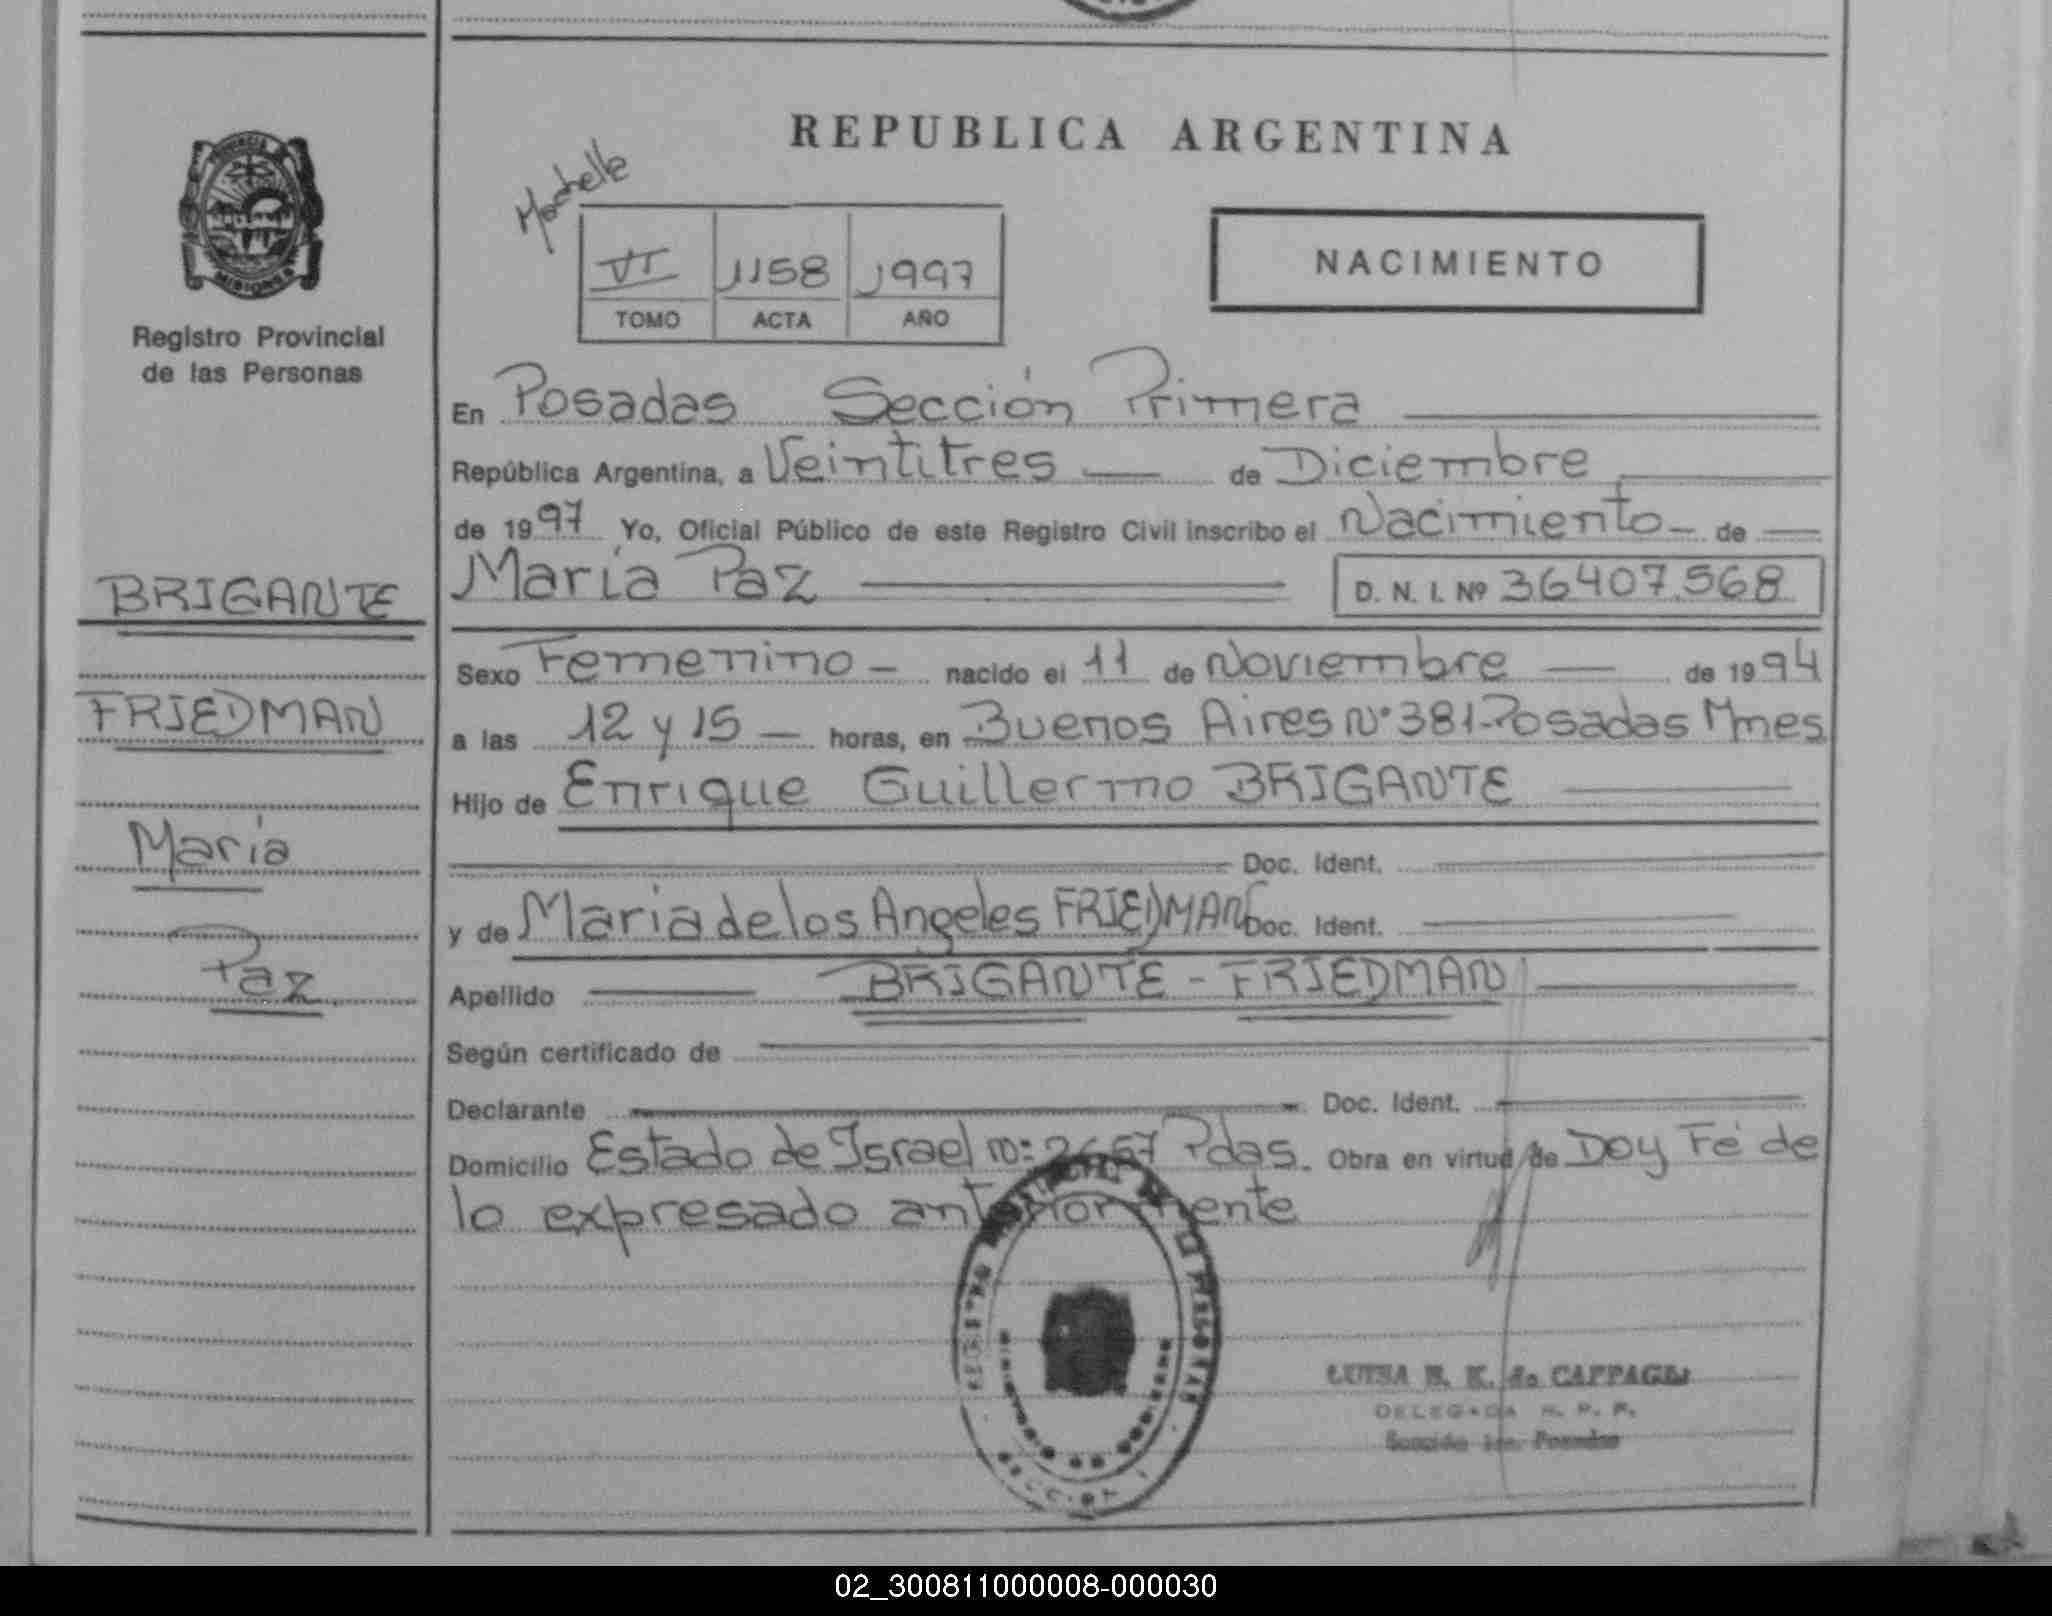 REPUBLICA ARGENTINA
PROVINCIA DE MISIONES
Registro Provincial
de las Personas
VI 1158 1997
TOMO ACTA AÑO
NACIMIENTO
En Posadas Sección Primera
República Argentina, a Veintitres de Diciembre
de 1997 Yo, Oficial Público de este Registro Civil inscribo el Nacimiento de
María Paz D. N. I. Nº 36407.568
BRIGANTE
FRIEDMAN
María
Paz
Sexo Femenino nacido el 11 de Noviembre de 1994
a las 12 y 15 horas, en Buenos Aires Nº 381-Posadas Mnes
Hijo de Enrique Guillermo BRIGANTE
Doc. Ident.
y de Maria de los Angeles FRIEDMAN Doc. Ident.
Apellido BRIGANTE - FRIEDMAN
Según certificado de
Declarante Doc. Ident.
Domicilio Estado de Israel Pdas. Obra en virtud de Doy Fé de
lo expresado anteriormente
LUISA de
DELEGADA R. P. P.
Sección 1ra. Posadas
02_300811000008-000030